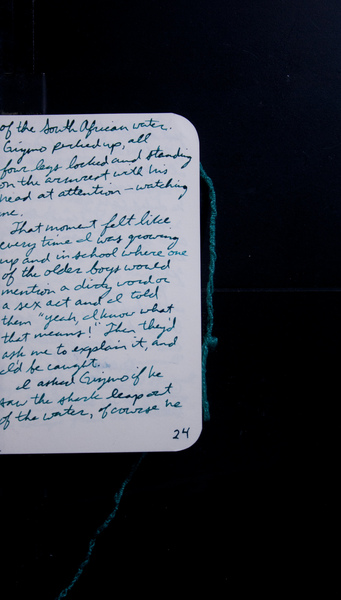 of the South African water.
Gizmo perked up, all
four legs locked and standing
on the armrest with his
head at attention – watching
me.
That moment felt like
every time I was growing
up and in school where one
of the older boys would
mention a dirty word or
a sex act and I told
them "yeah, I know what
that means!" Then they'd
ask me to explain it, and
I'd be caught.
I asked Gizmo if he
saw the shark leap out
of the water, of course he
24